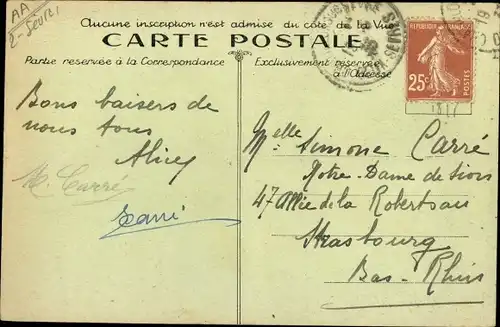 AA
2-SEVRES
Aucune inscription n'est admise du côté de la Vue
CARTE POSTALE
Partie réservée à la Correspondance
Exclusivement réservée
à l'Adresse
REPUBLIQUE FRANÇAISE
25c
POSTES
Bons baisers de
nous tous
Alice
M. Carré
Carré
Melle Simone Carré
Notre-Dame de Sion
47 Allée de la Robertsau
Strasbourg
Bas-Rhin